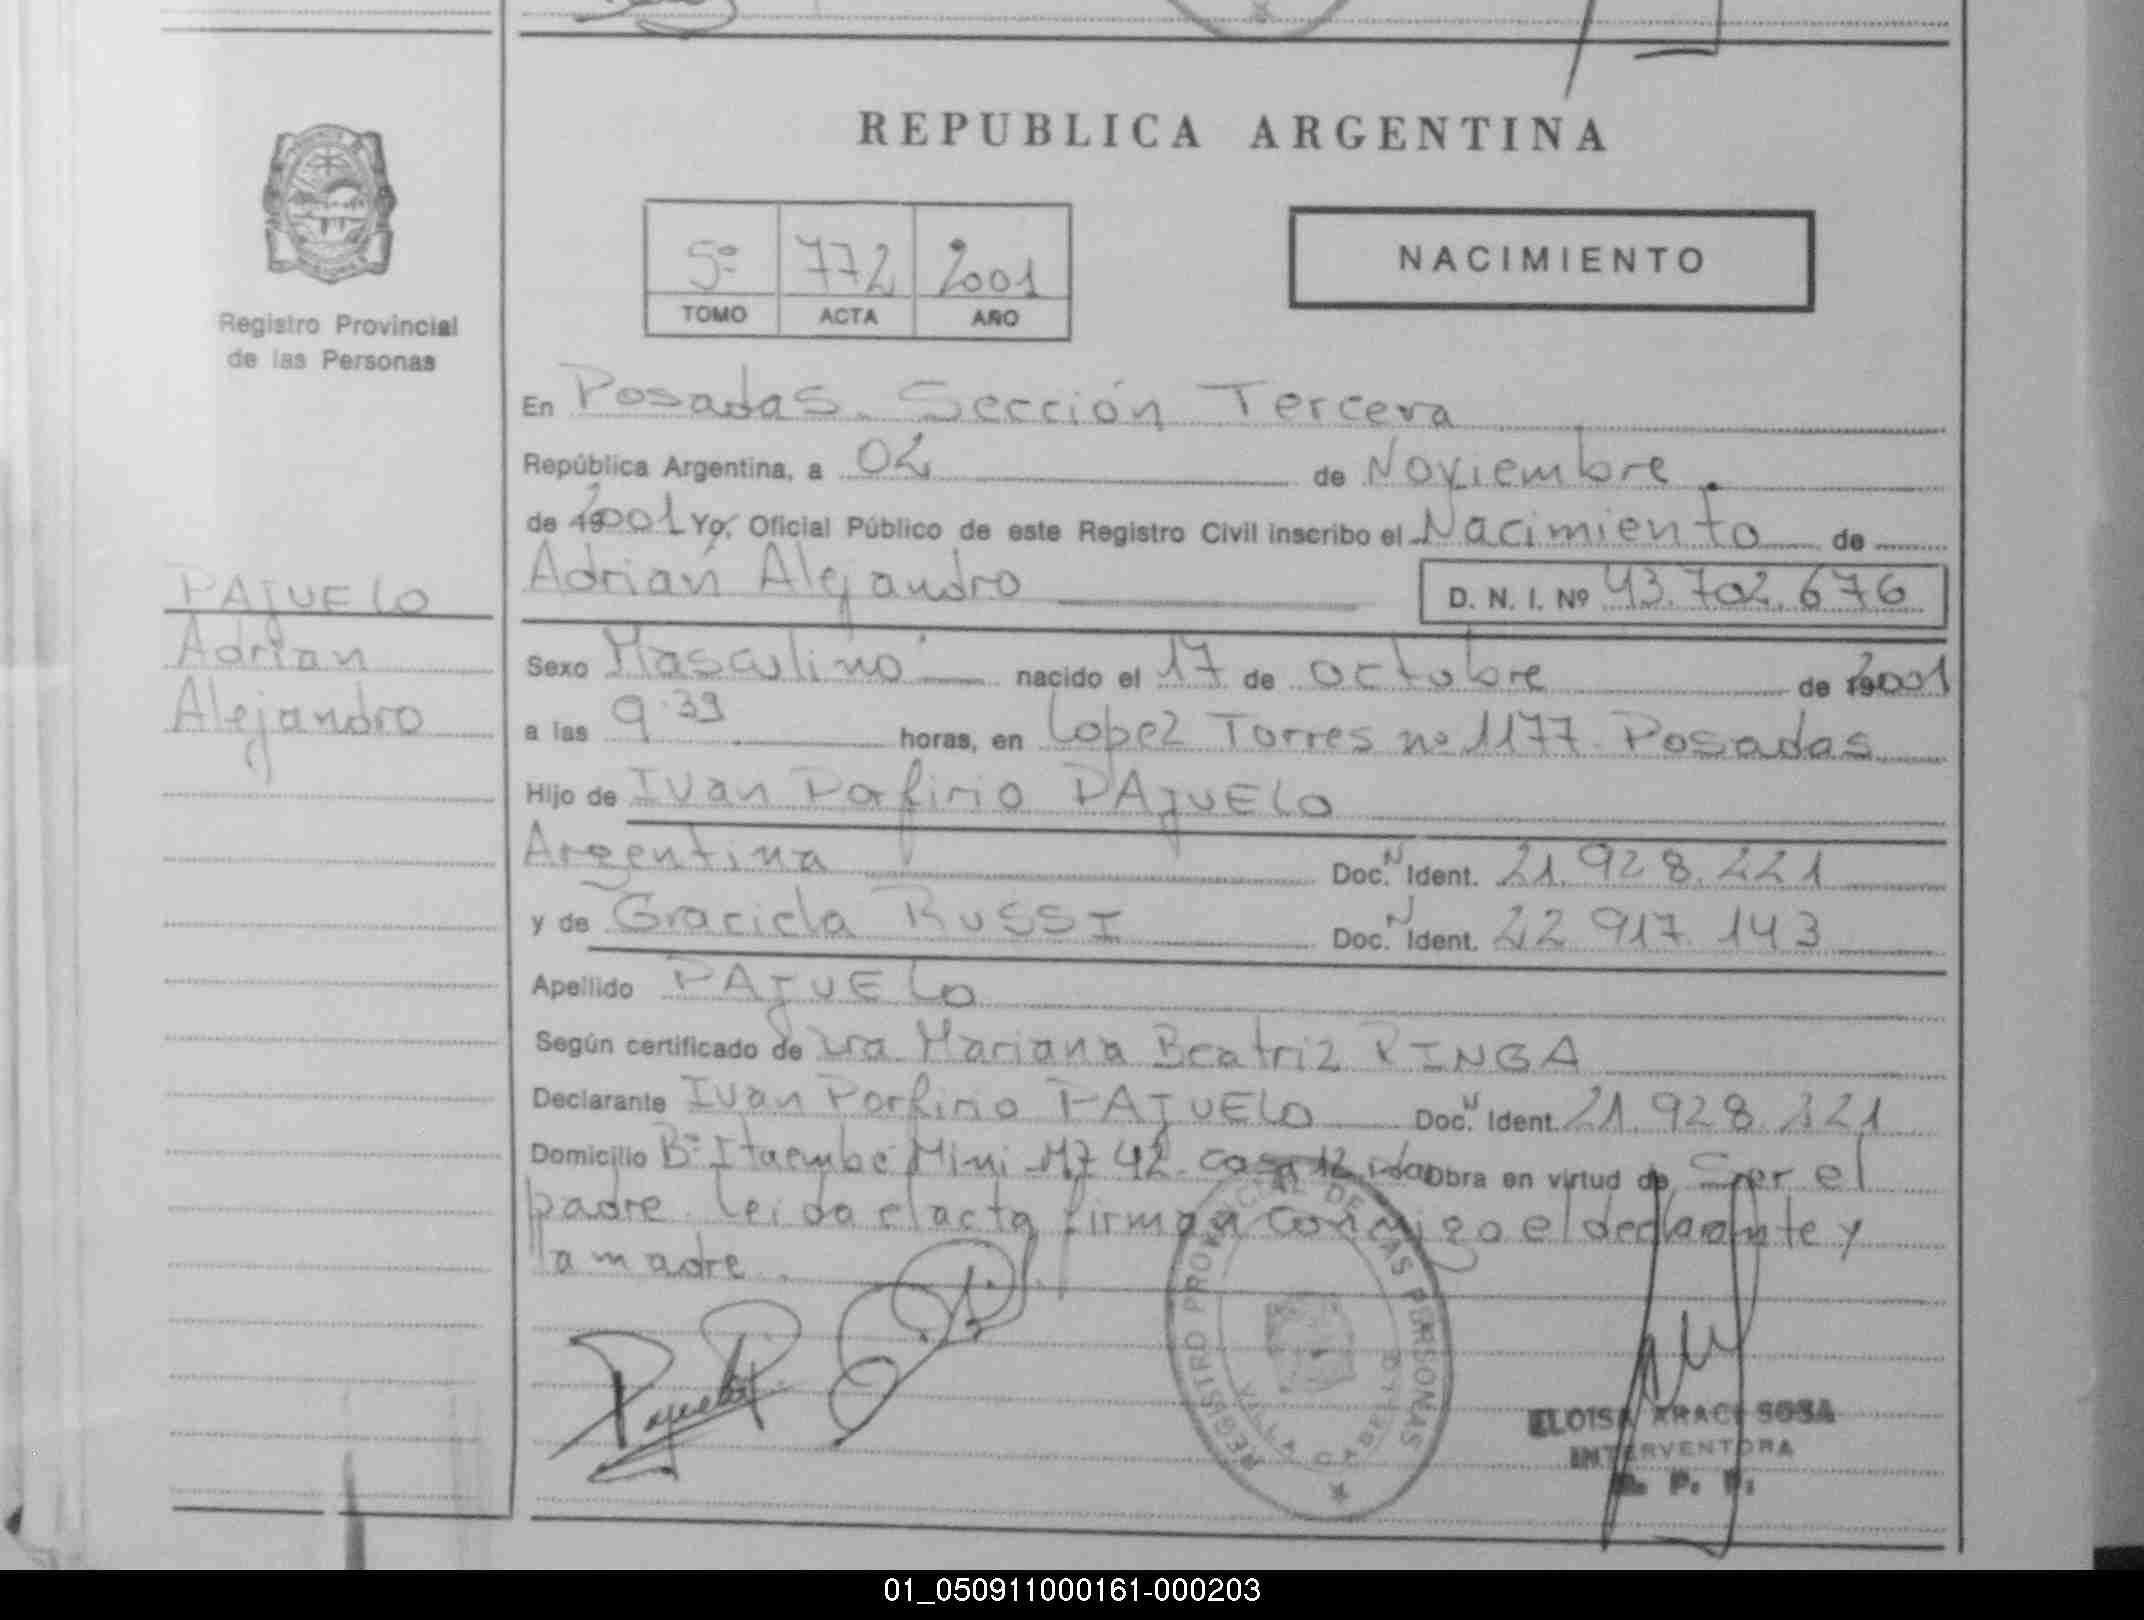 REPUBLICA ARGENTINA
5º 772 2001
TOMO ACTA AÑO
NACIMIENTO
Registro Provincial
de las Personas
En Posadas. Sección Tercera
República Argentina, a 02 de Noviembre.
de 2001 Yo, Oficial Público de este Registro Civil inscribo el Nacimiento de
Adrián Alejandro D. N. I. Nº 43.702.676
PAJUELO
Adrián
Alejandro
Sexo Masculino nacido el 17 de octubre de 2001
a las 9.39 horas, en Lopez Torres nº 1177. Posadas
Hijo de Ivan Porfirio PAJUELO
Argentina Doc. N Ident. 21.928.221
y de Graciela RUSSI Doc. N Ident. 22.917.143
Apellido PAJUELO
Según certificado de Dra. Mariana Beatriz RINGA
Declarante Ivan Porfirio PAJUELO Doc. N Ident. 21.928.221
Domicilio Bº Itaembé Mini Mz 42. casa 12, Obra en virtud de Ser el
padre. Leída el acta firman conmigo el declarante y
la madre.
REGISTRO PROVINCIAL DE LAS PERSONAS
VILLA CABELLO
ELOISA ARACI SOSA
INTERVENTORA
R. P. P.
01_050911000161-000203